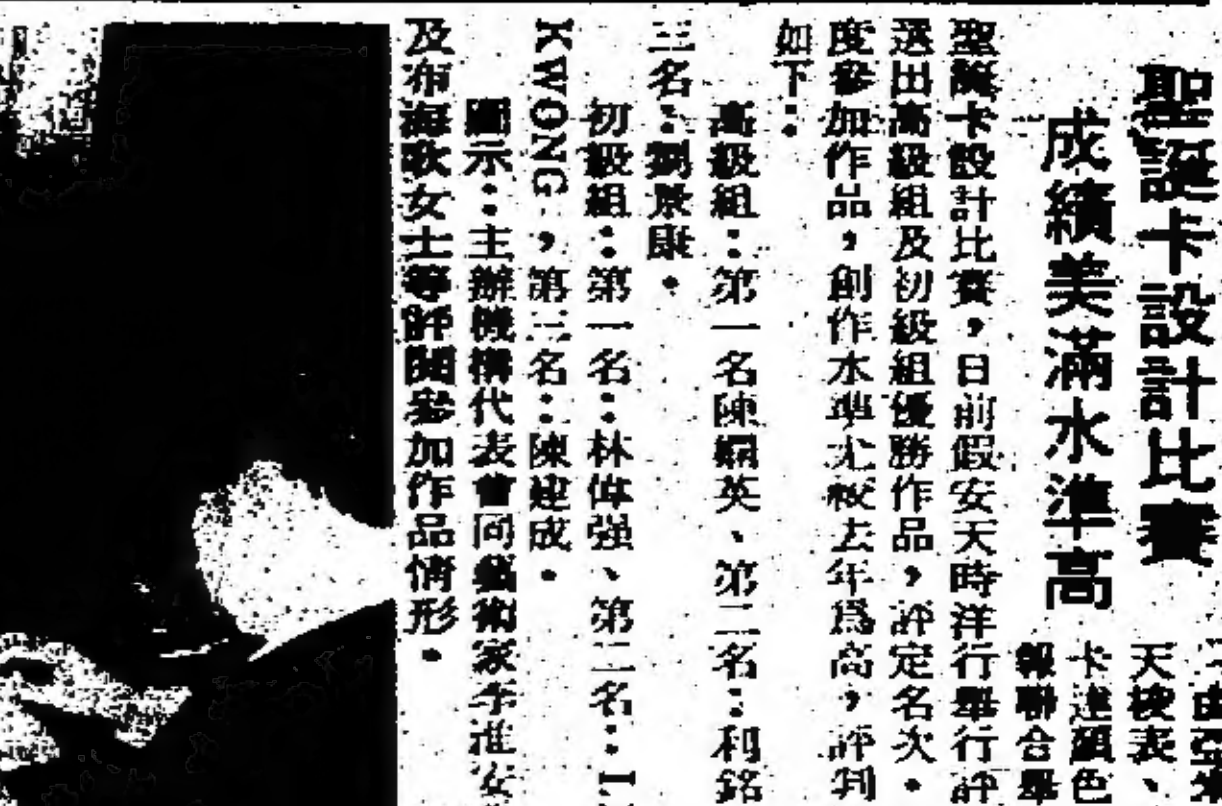 聖誕卡設計比賽
成績美滿水準高
天梭表、
卡達顏色
報聯合舉
聖誕卡設計比賽，日前假安天時洋行舉行評
選出高級組及初級組優勝作品，評定名次。
度參加作品，創作水準尤較去年爲高，評判
如下：
高級組：第一名陳娟英、第二名：利銘
三名：劉景康。
初級組：第一名：林偉强、第二名：
KWONG，第三名：陳建成。
圖示：主辦機構代表會同藝術家李進安
及布海歌女士等評閱參加作品情形。